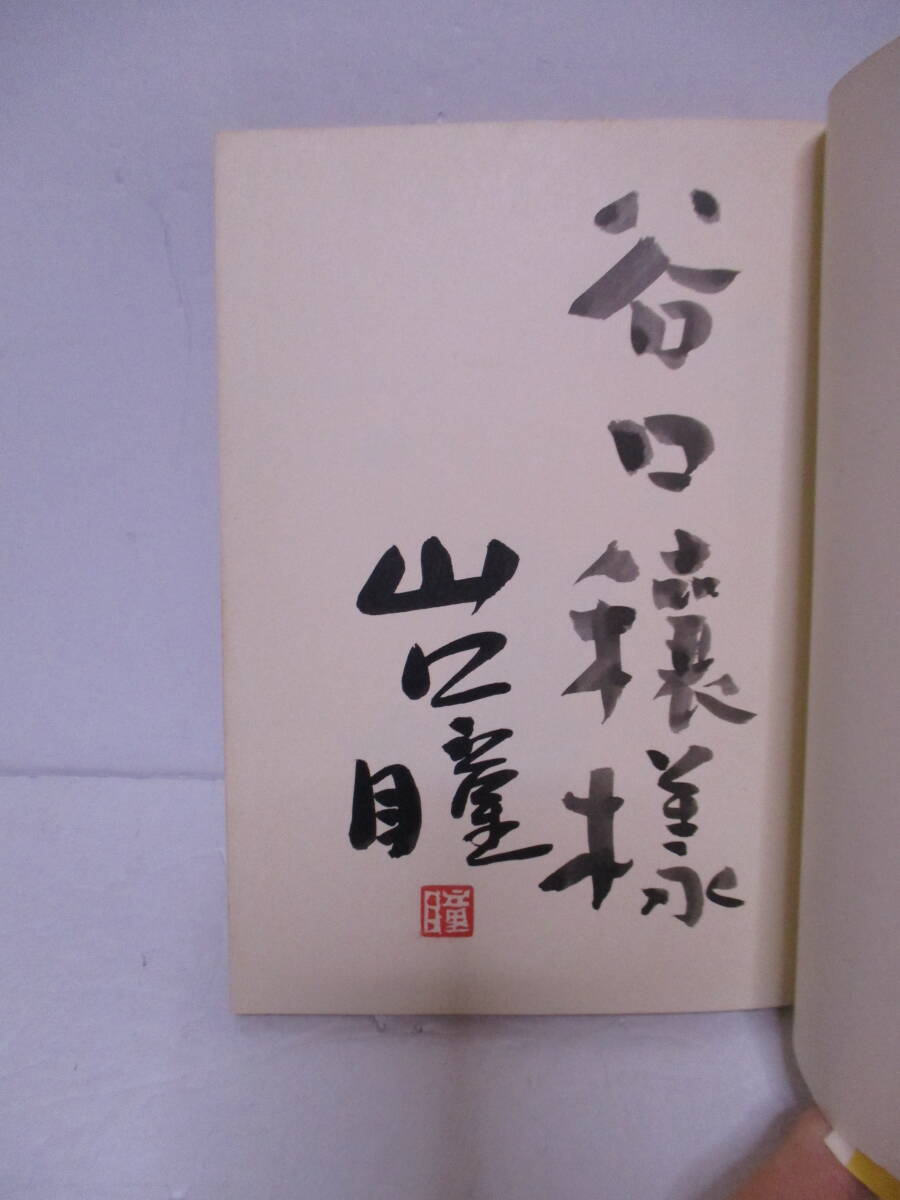 谷口穰様
山口瞳
瞳